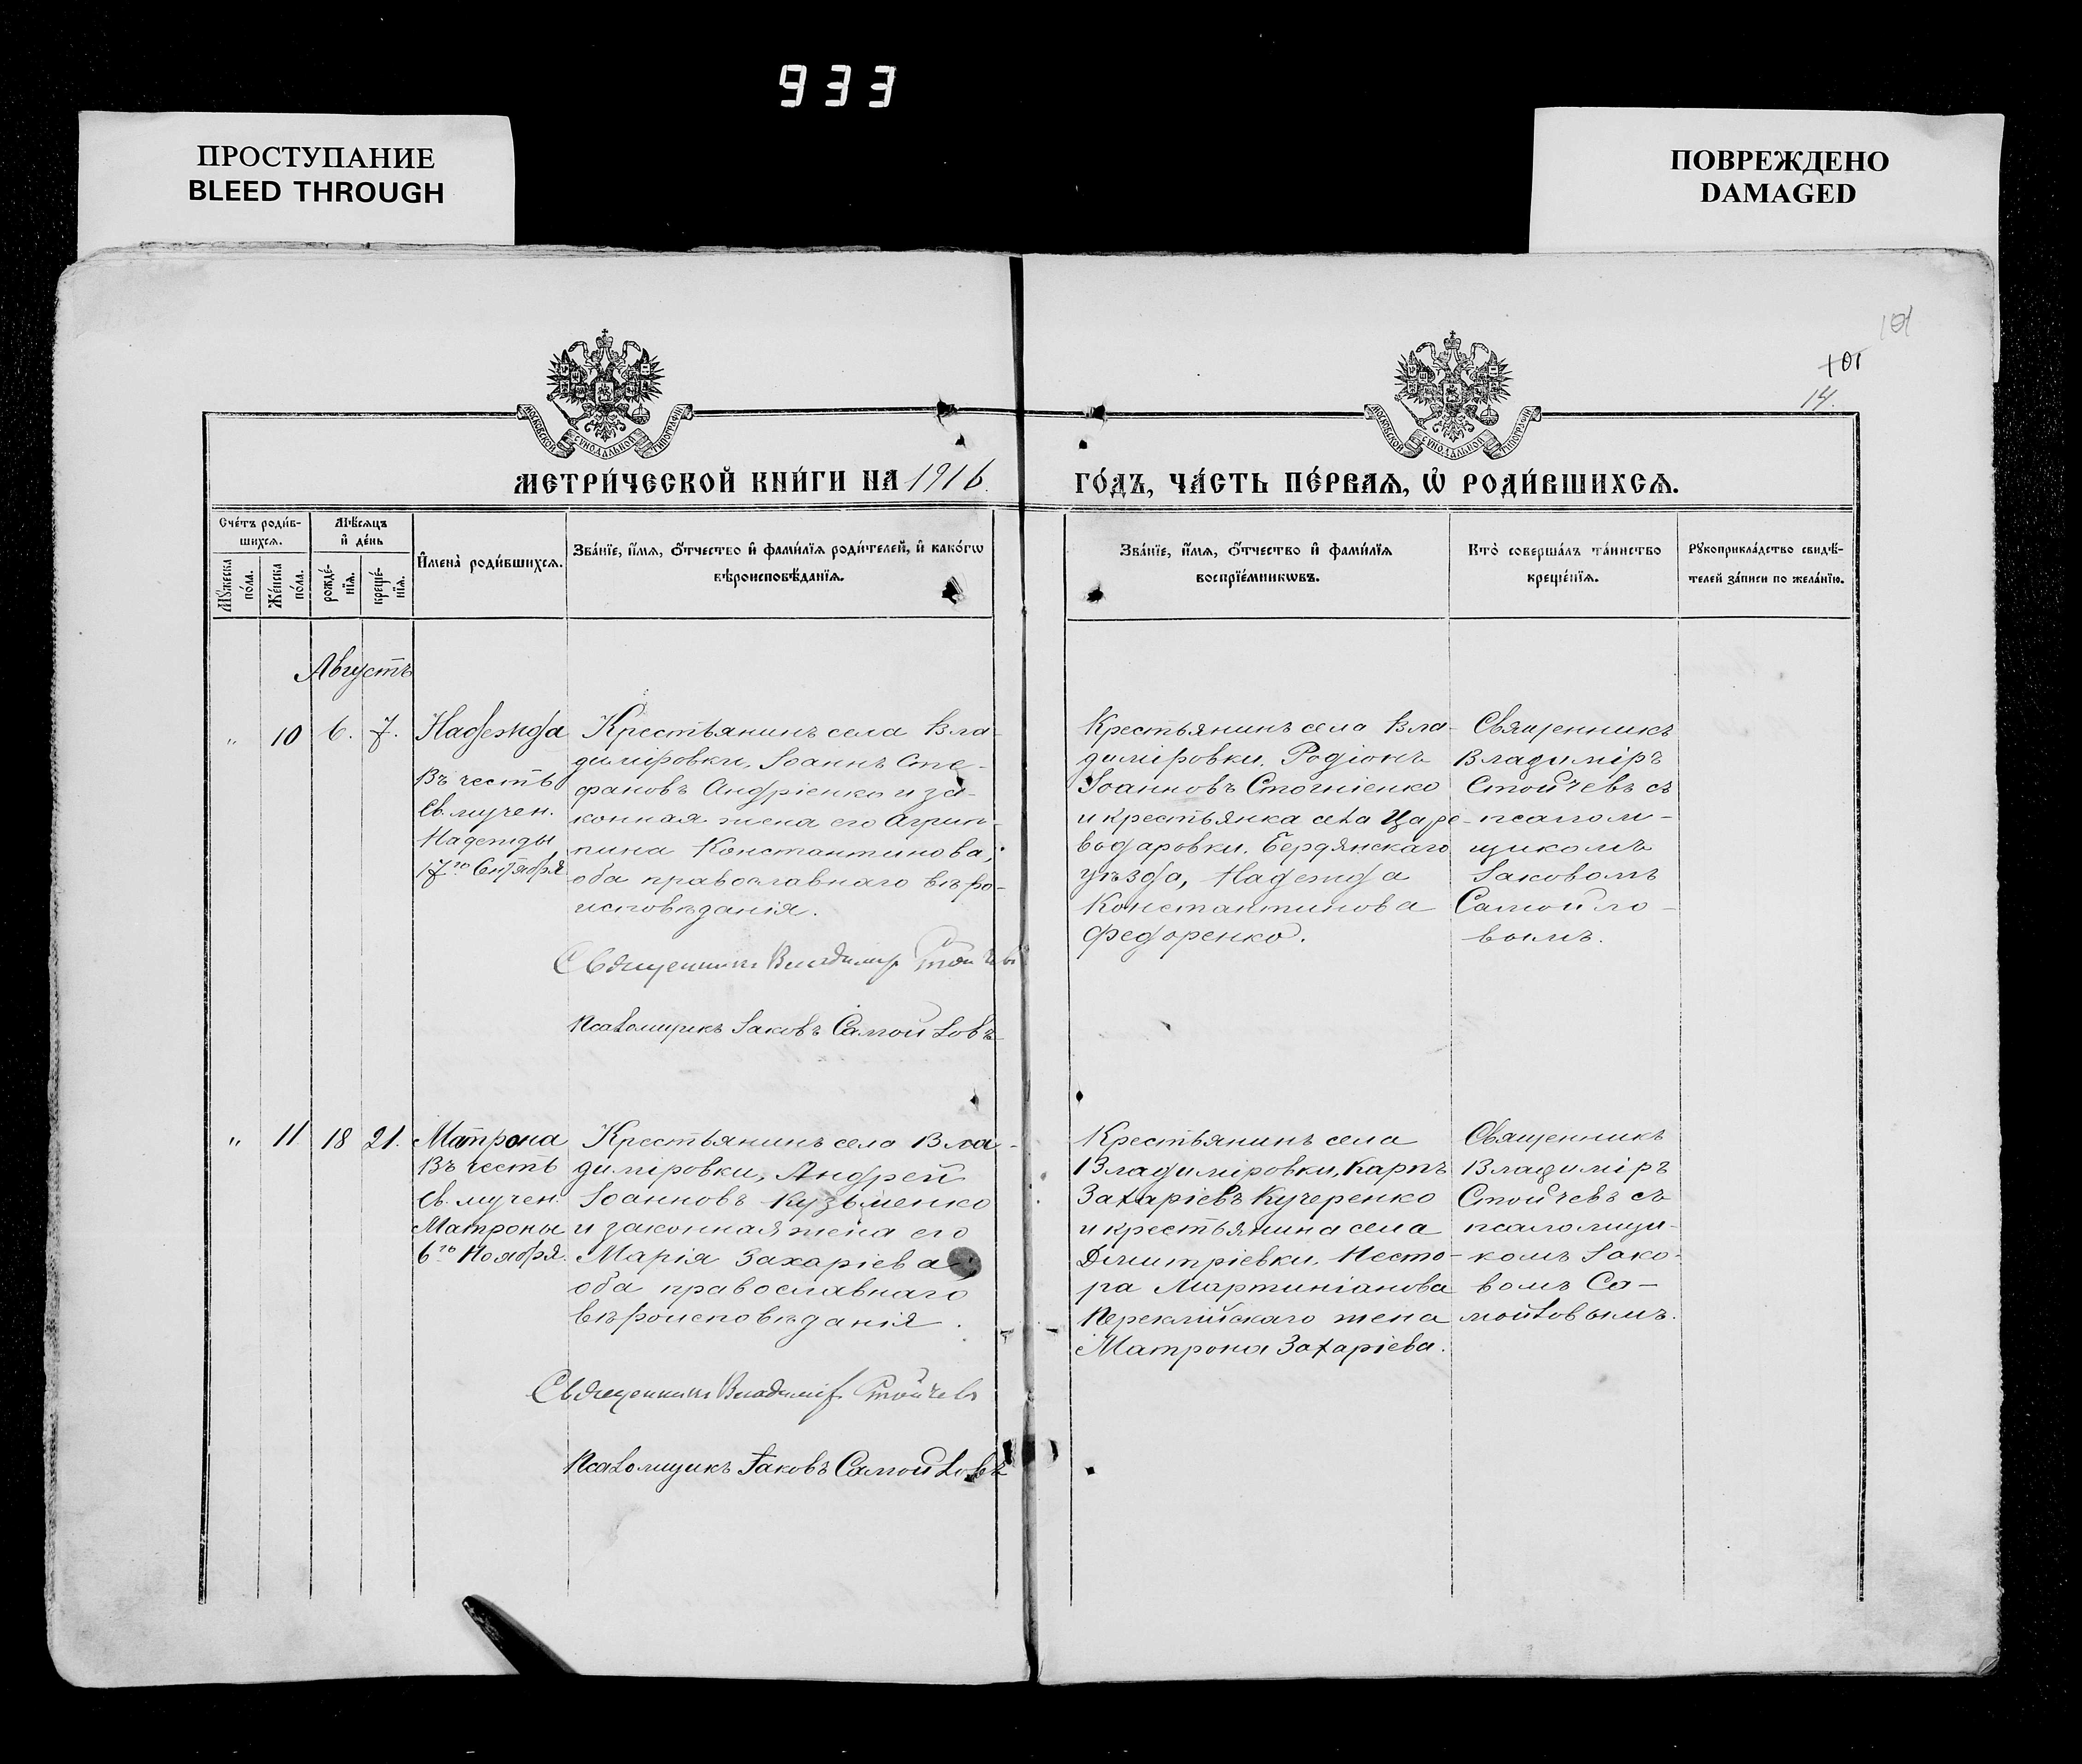 933
ПРОСТУПАНИЕ
BLEED THROUGH
ПОВРЕЖДЕНО
DAMAGED
101
101
14.
МОСКОВСКОЙ СѴНОДАЛЬНОЙ ТИПОГРАФІИ
МОСКОВСКОЙ СѴНОДАЛЬНОЙ ТИПОГРАФІИ
МЕТРИ́ЧЕСКОЙ КНИ́ГИ НА 1916
ГО́ДЪ, ЧА́СТЬ ПЕ́РВАѦ, Ѡ҆ РОДИ́ВШИХСѦ.
Сче́тъ роди́в-
шихсѧ.
Мꙋ́жеска
по́ла.
Же́нска
по́ла.
Мѣ́сѧцъ
и҆ де́нь
рожде́-
нїѧ.
креще́-
нїѧ.
И҆мена̀ роди́вшихсѧ.
Зва́нїе, и҆́мѧ, ѻ҆́тчество и҆ фами́лїѧ роди́телей, и҆ како́гѡ
вѣроисповѣ́данїѧ.
Зва́нїе, и҆́мѧ, ѻ҆́тчество и҆ фами́лїѧ
воспрїе́мникѡвъ.
Кто̀ соверша́лъ та́инство
креще́нїѧ.
Рꙋкоприкла́дство свидѣ́-
телей за́писи по жела́нїю.
Августъ
" 10 6. 7.
Надежда
Въ честь
Св. мучен.
Надежды
17го Сентября
Крестьянинъ села Вла-
диміровки, Іоаннъ Сте-
фановъ Андріенко и за-
конная жена его Агрип-
пина Константинова;
оба православнаго вѣро-
исповѣданія.
Священникъ Владимір Стойчевъ
Псаломщикъ Іаковъ Самойловъ
Крестьянинъ села Вла-
диміровки, Родіонъ
Іоанновъ Стогніенко
и крестьянка села Царе-
водаровки, Бердянскаго
уѣзда, Надежда
Константинова
Федоренко.
Священникъ
Владиміръ
Стойчевъ съ
псалом-
щикомъ
Іаковомъ
Самойло-
вымъ.
" 11 18 21.
Матрона
Въ честь
Св. мучен.
Матроны
6го Ноября.
Крестьянинъ села Вла-
диміровки, Андрей
Іоанновъ Кузьменко
и законная жена его
Марія Захаріева;
оба православнаго
вѣроисповѣданія.
Священникъ Владимір Стойчевъ
Псаломщикъ Іаковъ Самойловъ
Крестьянинъ села
Владиміровки, Карпъ
Захаріевъ Кучеренко
и крестьянина села
Дмитріевки, Несто-
ра Мартиніанова
жена
Матрона Захаріева.
Священникъ
Владиміръ
Стойчевъ съ
псаломщи-
комъ Іако-
вомъ Са-
мойловымъ.